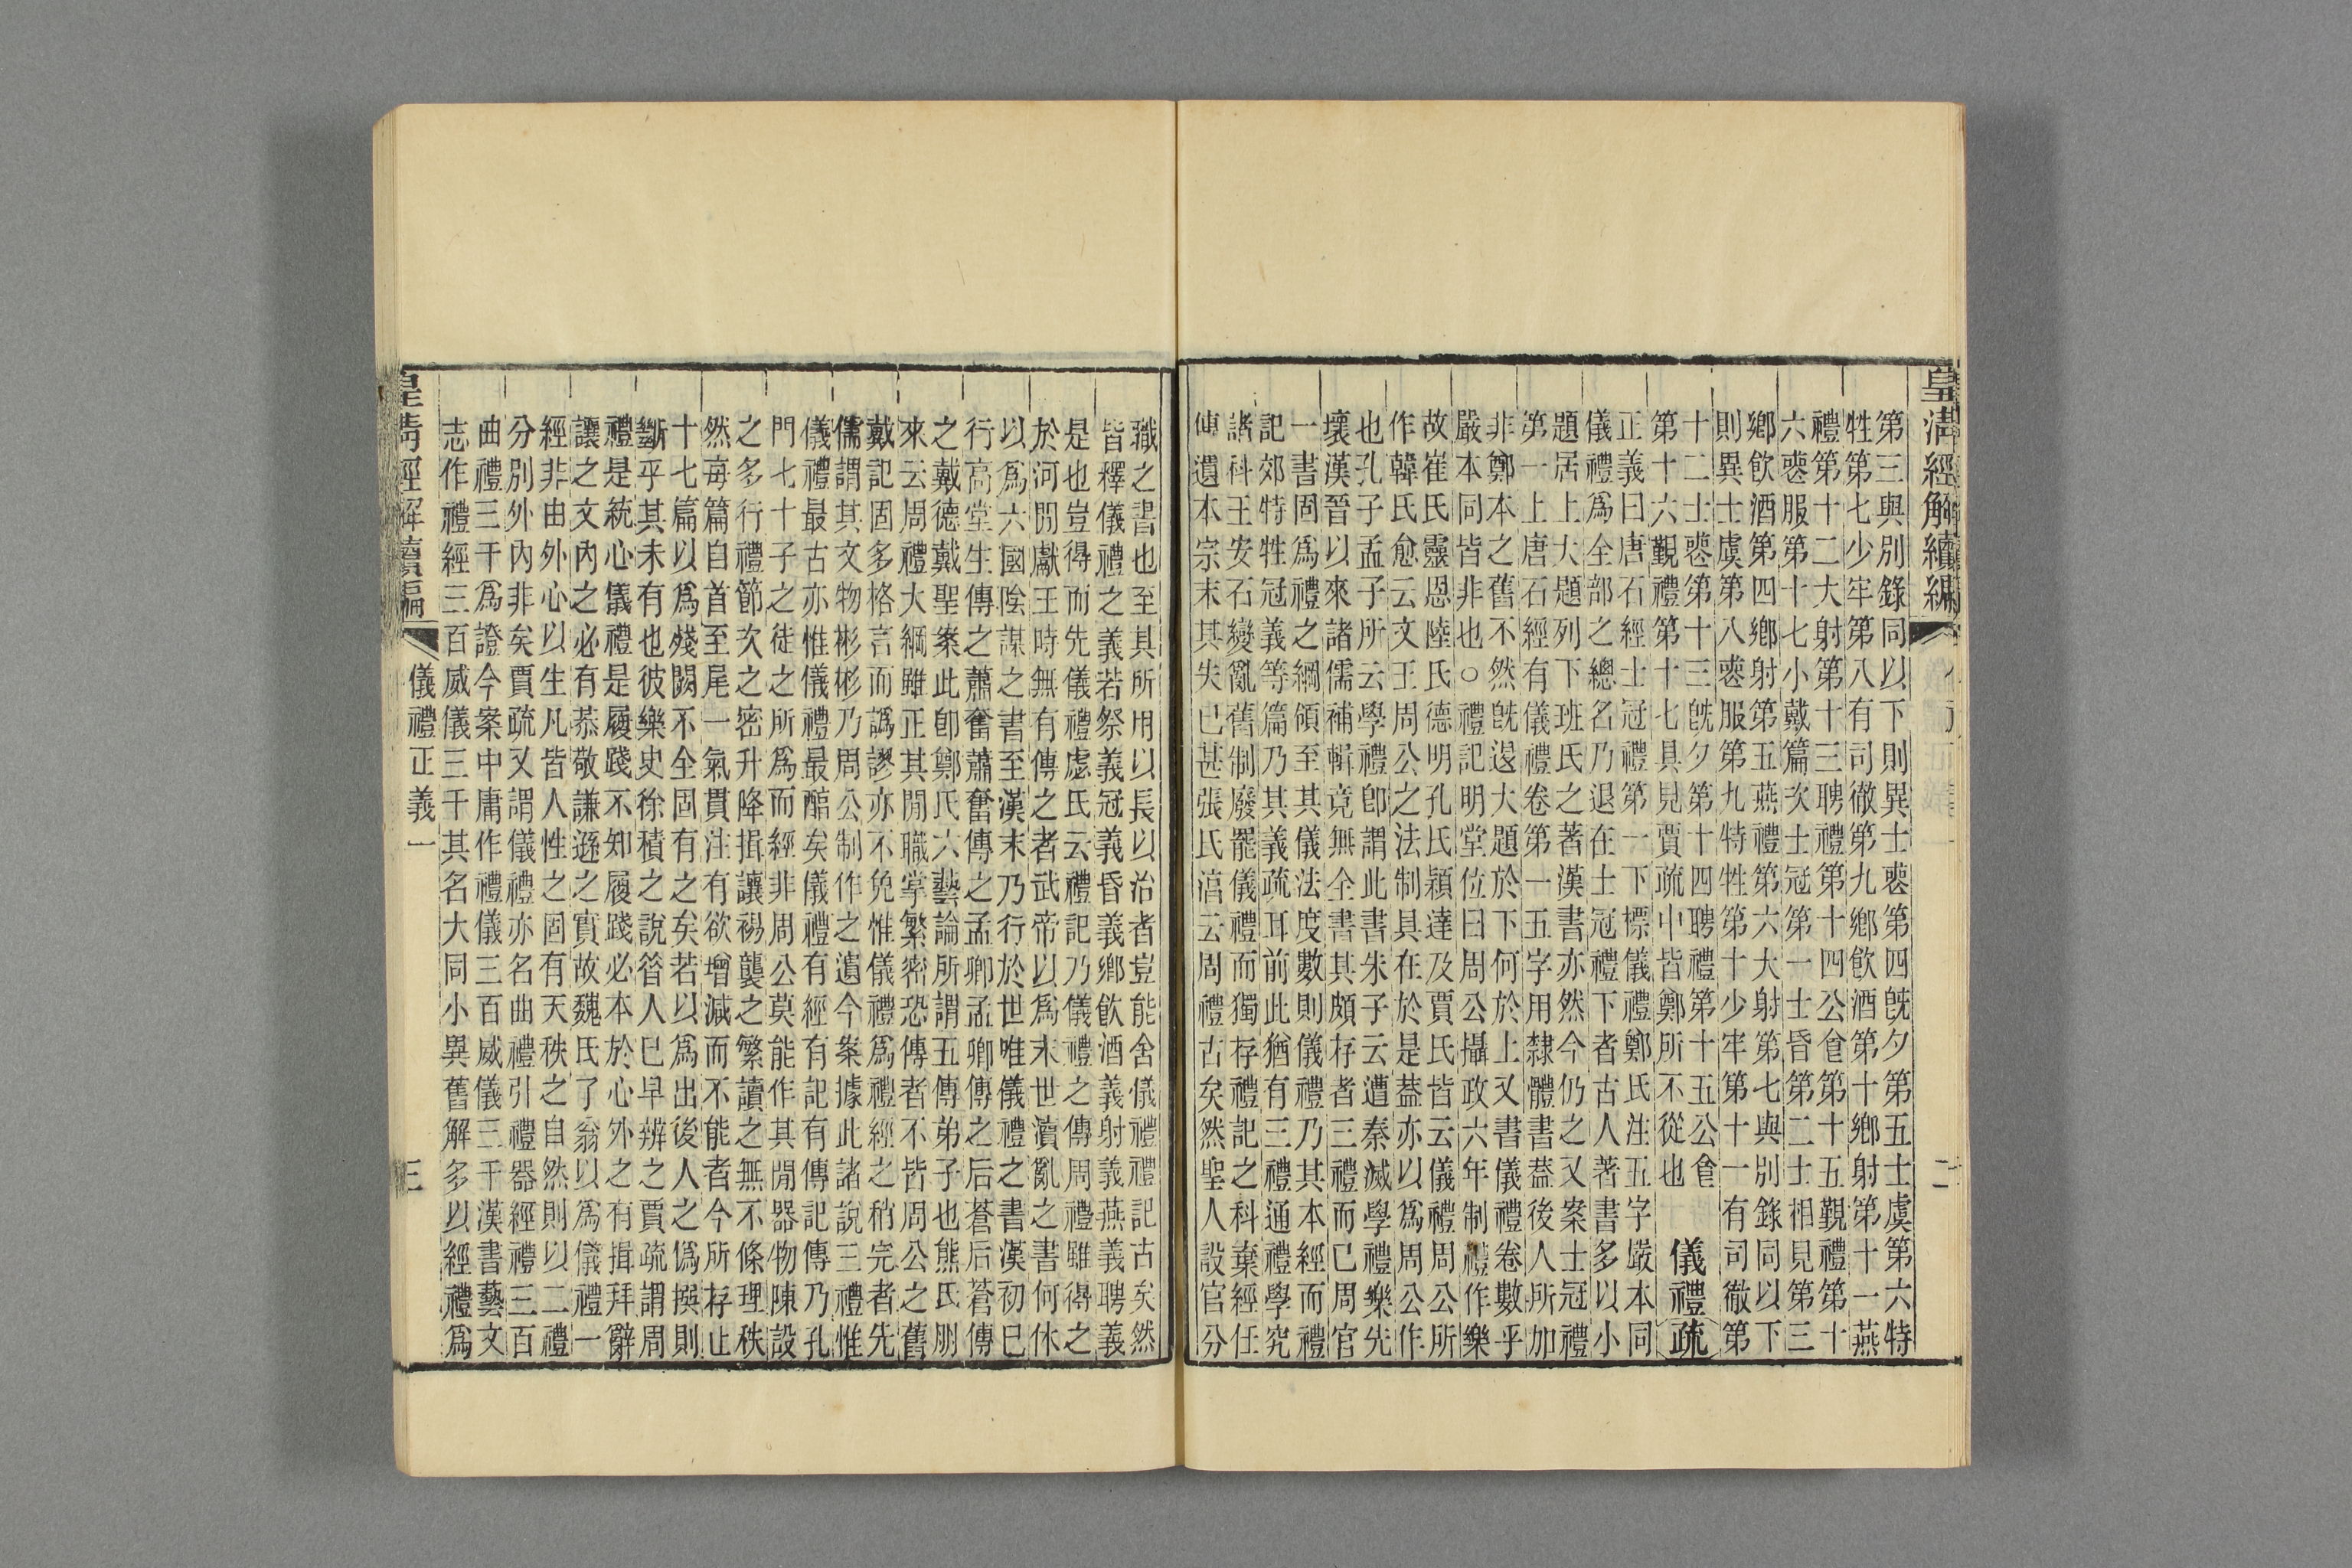 皇清經解續編
二
第三與別錄同以下則異士喪第四旣夕第五士虞第六特
牲第七少牢第八有司徹第九鄉飮酒第十鄉射第十一燕
禮第十二大射第十三聘禮第十四公食第十五覲禮第十
六喪服第十七小戴篇次士冠第一士昏第二士相見第三
鄉飮酒第四鄉射第五燕禮第六大射第七與別錄同以下
則異士虞第八喪服第九特牲第十少牢第十一有司徹第
十二士喪第十三旣夕第十四聘禮第十五公食
第十六覲禮第十七具見賈疏中皆鄭所不從也
儀禮疏
正義曰唐石經士冠禮第一下標儀禮鄭氏注五字嚴本同
儀禮爲全部之總名乃退在士冠禮下者古人著書多以小
題居上大題列下班氏之著漢書亦然今仍之又案士冠禮
第一上唐石經有儀禮卷第一五字用隸體書葢後人所加
非鄭本之舊不然旣退大題於下何於上又書儀禮卷數乎
嚴本同皆非也○禮記明堂位曰周公攝政六年制禮作樂
故崔氏靈恩陸氏德明孔氏穎達及賈氏皆云儀禮周公所
作韓氏愈云文王周公之法制具在於是葢亦以爲周公作
也孔子孟子所云學禮卽謂此書朱子云遭秦滅學禮樂先
壞漢晉以來諸儒補輯竟無全書其頗存者三禮而已周官
一書固爲禮之綱領至其儀法度數則儀禮乃其本經而禮
記郊特牲冠義等篇乃其義疏耳前此猶有三禮通禮學究
諸科王安石變亂舊制廢罷儀禮而獨存禮記之科棄經任
傳遺本宗末其失已甚張氏湻云周禮古矣然聖人設官分
職之書也至其所用以長以治者豈能舍儀禮禮記古矣然
皆釋儀禮之義若祭義冠義昏義鄉飮酒義射義燕義聘義
是也豈得而先儀禮虙氏云禮記乃儀禮之傳周禮雖得之
於河閒獻王時無有傳之者武帝以爲末世瀆亂之書何休
以爲六國陰謀之書至漢末乃行於世唯儀禮之書漢初已
行高堂生傳之蕭奮蕭奮傳之孟卿孟卿傳之后蒼后蒼傳
之戴德戴聖案此卽鄭氏六藝論所謂五傳弟子也熊氏朋
來云周禮大綱雖正其閒職掌繁密恐傳者不皆周公之舊
戴記固多格言而譌謬亦不免惟儀禮爲禮經之稍完者先
儒謂其文物彬彬乃周公制作之遺今案據此諸說三禮惟
儀禮最古亦惟儀禮最醕矣儀禮有經有記有傳記傳乃孔
門七十子之徒之所爲而經非周公莫能作其閒器物陳設
之多行禮節次之密升降揖讓裼襲之繁讀之無不條理秩
然每篇自首至尾一氣貫注有欲增減而不能者今所存止
十七篇以爲殘闕不全固有之矣若以爲出後人之僞撰則
斷乎其未有也彼樂史徐積之說昝人已早辨之賈疏謂周
禮是統心儀禮是履踐不知履踐必本於心外之有揖拜辭
讓之文內之必有恭敬謙遜之實故魏氏了翁以爲儀禮一
經非由外心以生凡皆人性之固有天秩之自然則以二禮
分別外內非矣賈疏又謂儀禮亦名曲禮引禮器經禮三百
曲禮三千爲證今案中庸作禮儀三百威儀三千漢書藝文
志作禮經三百威儀三千其名大同小異舊解多以經禮爲
皇清經解續編
儀禮正義一
三